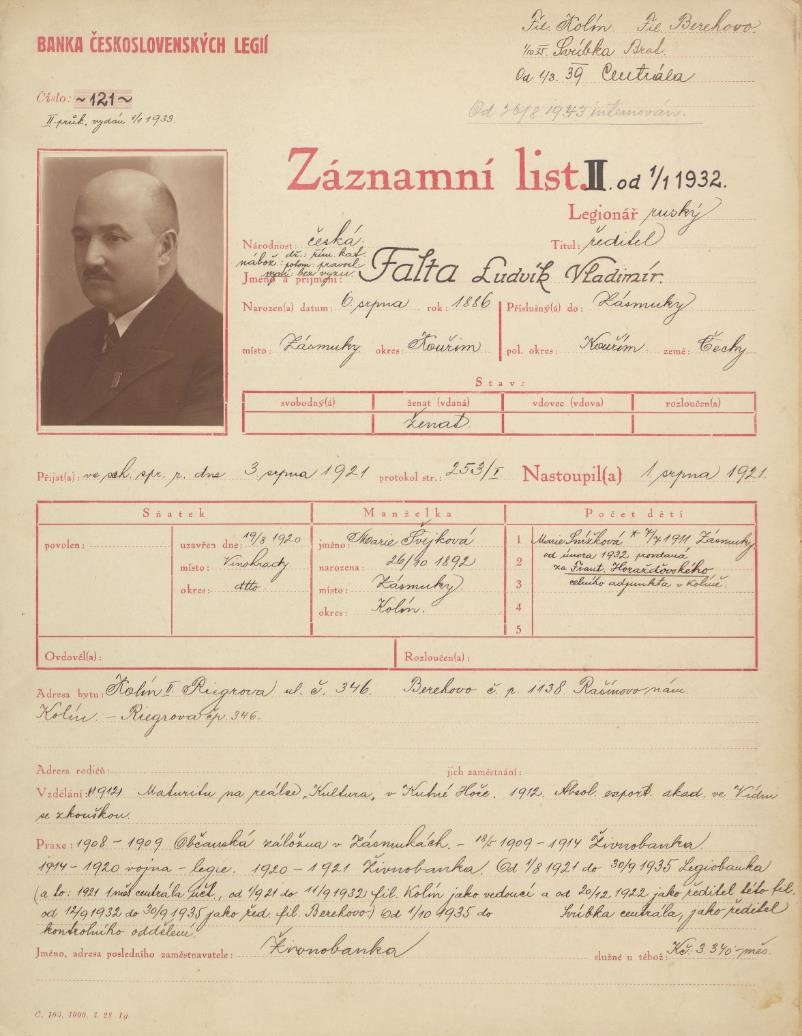 Fil. Kolín Fil. Berehovo.
BANKA ČESKOSLOVENSKÝCH LEGIÍ
1/10 35 Svébka Brat.
Od 1/3. 39 Centrála
Číslo: ~121~
Od 26/8 1943 internován.
II průk. vydán 1/1 1933.
Záznamní list. II. od 1/1 1932.
Legionář ruský
Národnost: česká
Titul: ředitel
nábož.: dř. řím. kat.
potom: pravosl.
nyní bez vyzn.
Jméno a příjmení: Falta Ludvík Vladimír.
Narozen(a) datum: 6. srpna rok: 1886 Příslušný(á) do: Zásmuky
místo: Zásmuky okres: Kouřim pol. okres: Kouřim země: Čechy
Stav:
svobodný(á) ženat (vdaná) vdovec (vdova) rozloučen(a)
ženat.
Přijat(a): ve sch. spr. r. dne 3. srpna 1921 protokol str.: 253/I Nastoupil(a) 1. srpna 1921.
Sňatek Manželka Počet dětí
povolen: uzavřen dne: 19/8 1920 jméno: Marie 1 Marie * 7/7 1911 Zásmuky
od února 1932 provdaná
místo: Vinohrady narozena: 26/10 1892 2 za Frant. Horažďovského
okres: dtto místo: Zásmuky 3 celního adjunkta v Kolíně.
okres: Kolín 4
5
Ovdověl(a): Rozloučen(a):
Adresa bytu: Kolín II. Riegrova ul. č. 346. Berehovo č. p. 1138. Rašínovo nám.
Kolín. – Riegrova čp. 346.
Adresa rodičů: jich zaměstnání:
Vzdělání: Maturitu na reálse „Kultura„ v Kutné Hoře. 1912. Absol. export. akad. ve Vídni
se zkouškou.
Praxe: 1908 – 1909 Občanská záložna v Zásmukách. – 1909 – 1914 Živnobanka.
1914 – 1920 vojna – legie. 1920 – 1921 Živnobanka. Od 1/8 1921 do 30/9 1935 Legiobanka
(a to: 1921 1. měs. centrála účt., od 1/9 21 do 11/9 1932: fil. Kolín jako vedoucí a od 20/12. 1922 jako ředitel této fil.
od 12/9 1932 do 30/9 1935 jako řed. fil. Berehovo.) Od 1/10 1935 do Svébka centrála, jako ředitel
kontrolního oddělení.
Jméno, adresa posledního zaměstnavatele: Živnobanka služné u téhož: Kč. 3.340·– měs.
Č. 103. 1000. 7. 28. Lg.